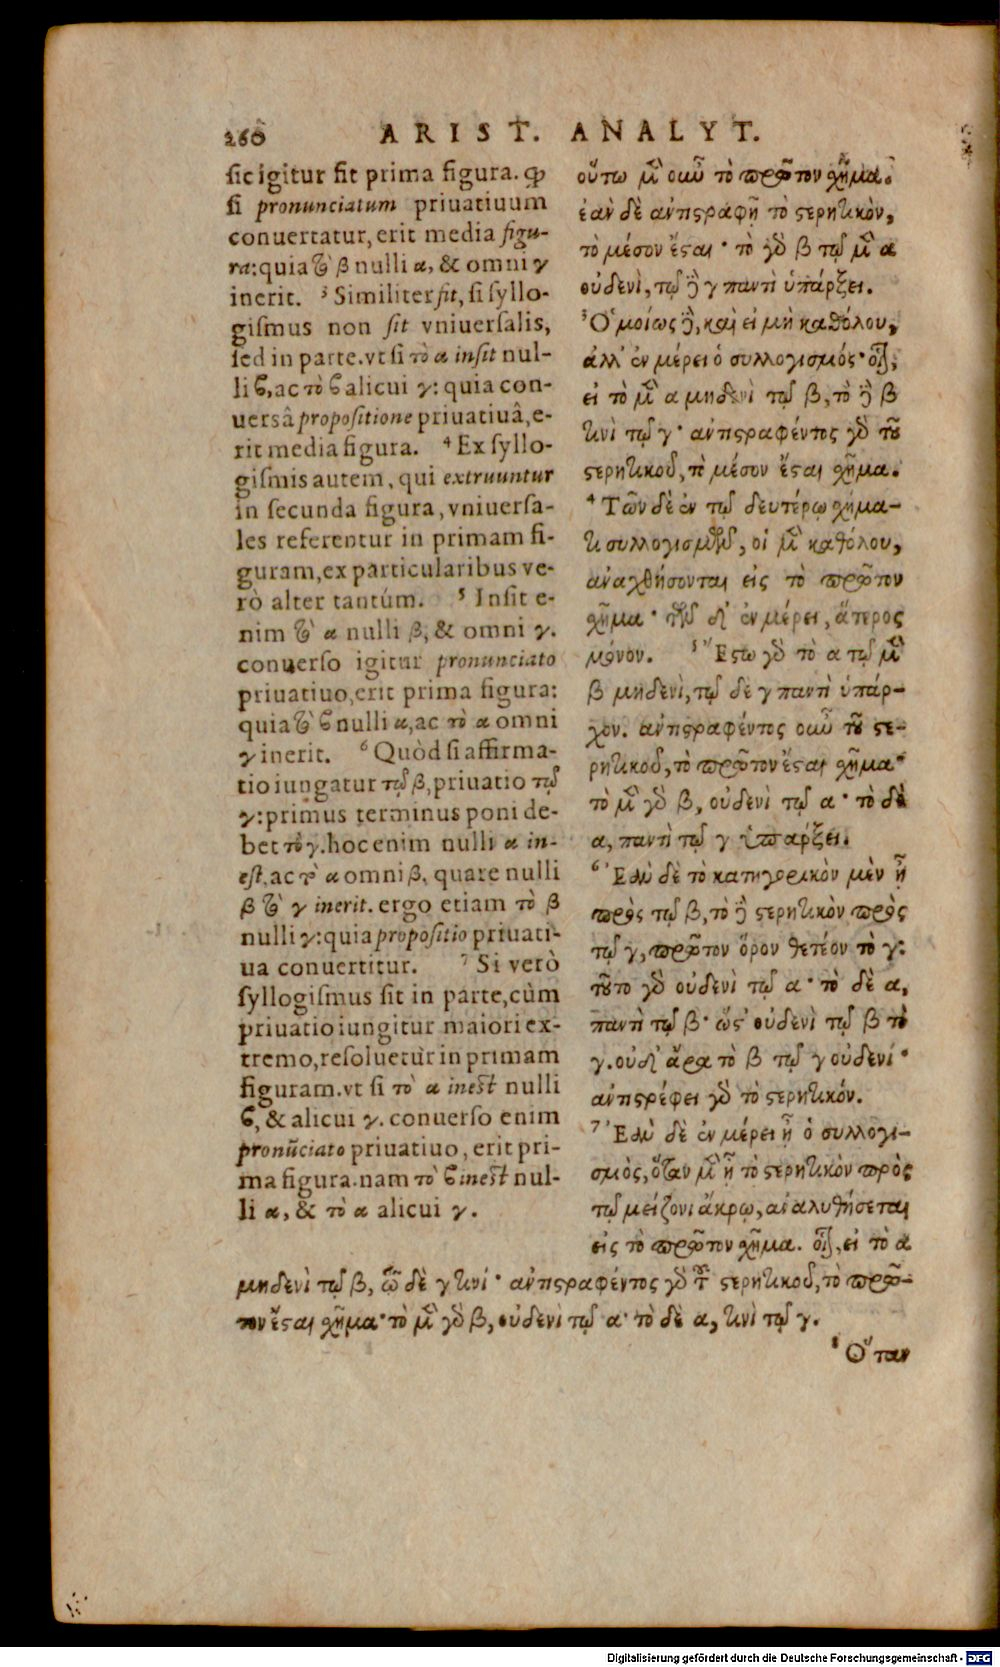 260 ARIST. ANALYT.
sic igitur fit prima figura. ꝙ
si pronunciatum priuatiuum
conuertatur, erit media figu-
ra: quia τὸ β nulli α, & omni γ
inerit. 3 Similiter fit, si syllo-
gismus non sit vniuersalis,
sed in parte. vt si τὸ α insit nul-
li ϐ, ac τὸ ϐ alicui γ: quia con-
uersâ propositione priuatiuâ, e-
rit media figura. 4 Ex syllo-
gismis autem, qui extruuntur
in secunda figura, vniuersa-
les referentur in primam fi-
guram, ex particularibus ve-
rò alter tantúm. 5 Insit e-
nim τὸ α nulli β, & omni γ.
conuerso igitur pronunciato
priuatiuo, erit prima figura:
quia τὸ ϐ nulli α, ac τὸ α omni
γ inerit. 6 Quòd si affirma-
tio iungatur τῷ β, priuatio τῷ
γ: primus terminus poni de-
bet τὸ γ. hoc enim nulli α in-
est, ac τὸ α omni β, quare nulli
β τὸ γ inerit. ergo etiam τὸ β
nulli γ: quia propositio priuati-
ua conuertitur. 7 Si verò
syllogismus sit in parte, cùm
priuatio iungitur maiori ex-
tremo, resoluetur in primam
figuram. vt si τὸ α inest nulli
ϐ, & alicui γ. conuerso enim
pronũciato priuatiuo, erit pri-
ma figura. nam τὸ ϐ inest nul-
li α, & τὸ α alicui γ.
οὕτω μὲν οὖν τὸ πρῶτον χῆμα.
ἐὰν δὲ ἀντιςραφῇ τὸ ςερητικὸν,
τὸ μέσον ἔςαι· τὸ γὸ β τῷ μὲν α
οὐδενὶ, τῷ δὲ γ παντὶ ὑπάρξει.
3 Ὁμοίως δὲ, καὶ εἰ μὴ καθόλου,
ἀλλ' ἐν μέρει ὁ συλλογισμός· οἷον,
εἰ τὸ μὲν α μηδενὶ τῷ β, τὸ δὲ β
τινὶ τῷ γ· ἀντιςραφέντος γὸ τοῦ
ςερητικοῦ, τὸ μέσον ἔςαι χῆμα.
4 Τῶν δὲ ἐν τῷ δευτέρῳ χήμα-
τι συλλογισμῶν, οἱ μὲν καθόλου,
ἀναχθήσονται εἰς τὸ πρῶτον
χῆμα· τῶν δ' ἐν μέρει, ἅτερος
μόνον. 5 Ἔςω γὸ τὸ α τῷ μὲν
β μηδενὶ, τῷ δὲ γ παντὶ ὑπάρ-
χον. ἀντιςραφέντος οὖν τοῦ ςε-
ρητικοῦ, τὸ πρῶτον ἔςαι χῆμα·
τὸ μὲν γὸ β, οὐδενὶ τῷ α· τὸ δὲ
α, παντὶ τῷ γ ὑπαρξει.
6 Ἐὰν δὲ τὸ κατηγορικὸν μὲν ᾖ
πρὸς τῷ β, τὸ δὲ ςερητικὸν πρὸς
τῷ γ, πρῶτον ὅρον θετέον τὸ γ:
τοῦτο γὸ οὐδενὶ τῷ α· τὸ δὲ α,
παντὶ τῷ β· ὥς' οὐδενὶ τῷ β τὸ
γ. οὐδ' ἄρα τὸ β τῷ γ οὐδενί·
ἀντιςρέφει γὸ τὸ ςερητικόν.
7 Ἐὰν δὲ ἐν μέρει ᾖ ὁ συλλογι-
σμὸς, ὅταν μὲν ᾖ τὸ ςερητικὸν πρὸς
τῷ μείζονι ἄκρῳ, ἀναλυθήσεται
εἰς τὸ πρῶτον χῆμα. οἷον, εἰ τὸ α
μηδενὶ τῷ β, τῷ δὲ γ τινί· ἀντιςραφέντος γὸ τοῦ ςερητικοῦ, τὸ πρῶ-
τον ἔςαι χῆμα· τὸ μὲν γὸ β, οὐδενὶ τῷ α· τὸ δὲ α, τινὶ τῷ γ.
8 Ὅταν
Digitalisierung gefördert durch die Deutsche Forschungsgemeinschaft - DFG